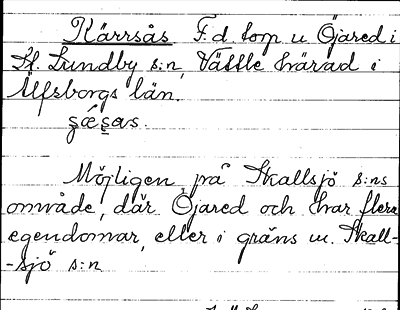 Kärrsås F.d. torp u. Öjared i
St. Lundby s:n, Vättle härad i
Älfsborgs län.
Möjligen på Skallsjö s:ns
område, där Öjared och har flera
egendomar, eller i gräns m. Skall-
-sjö s:n